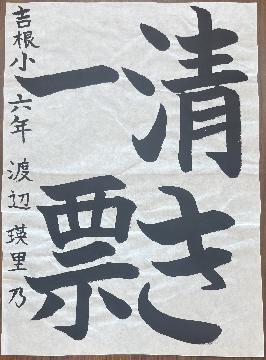 清き
一票
吉根小 六年 渡辺 瑛里乃